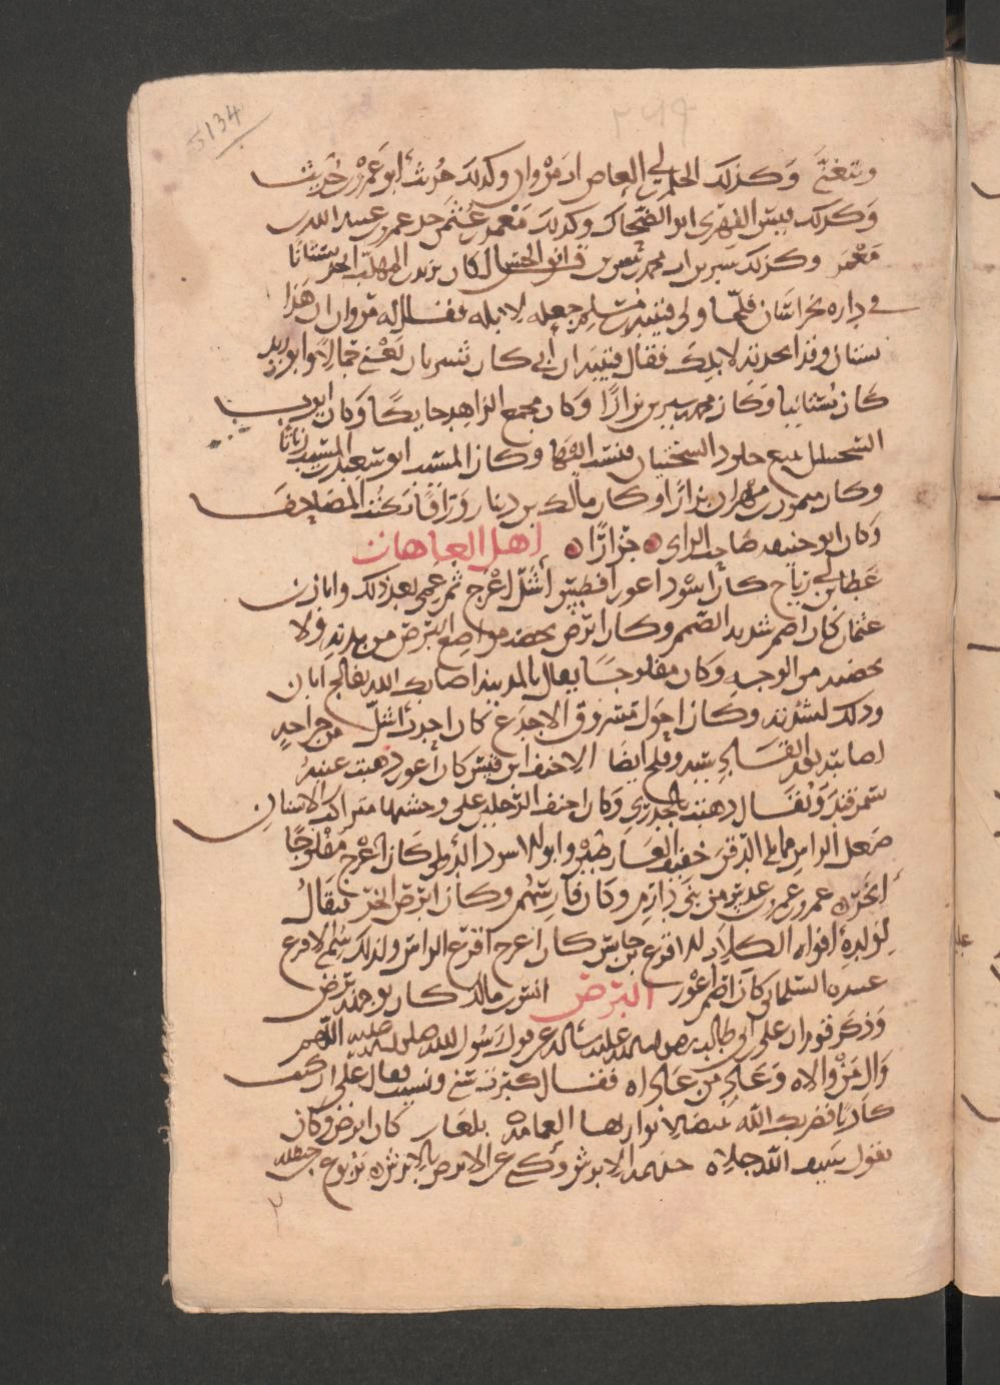 5134
٢٩٩
وتتغنى وكذلك الحكم بن ابي العاص ابو مروان وكذلك حريث ابو عمرو بن حريث
وكذلك قيس الفهري ابو الضحاك وكذلك معمر بن عثمن جد عمر بن عبيد الله بن
معمر وكذلك سيرين ابو محمد بن سيرين كان يزيد بن المهلب اتخذ بستانا
في داره بخراسان فلما ولي قتيبة بن مسلم جعله لابله فقال له مرزبان ان هذا
بستان وقد اتخذته لابلك فقال قتيبة ان ابي كان شتربان يعني جمالا وابو يزيد
كان بستانيا وكان محمد بن سيرين بزازا وكان مجمع الزاهد حايكا وكان ايوب
السختياني يبيع جلود السختيان فنسب اليها وكان المسيب ابو سعيد بن المسيب زياتا
وكان ميمون بن مهران بزازا وكان مالك بن دينار وراقا يكتب المصاحف
وكان ابو حنيفه صاحب الراي خزازا اهل العاهات
عطا بن ابي رباح كان اسود اعور افطس اشل اعرج ثم عمي بعد ذلك وابان بن
عثمان كان اصم شديد الصمم وكان ابرص يخضب مواضع البرص من يديه ولا
يخضبه من الوجه وكان مفلوجا يقال بالمدينه اصابك الله بفالج ابان
وذلك لشدته وكان احول مسروق الاجدع كان احدب اشل من جراحه
اصابته يوم القادسيه وفلج ايضا الاحنف ابن قيس كان اعور ذهبت عينه
بسمرقند ويقال ذهبت بالجدري وكان احنف الرجلين على وحشيها متراكب الاسنان
صعل الراس مايل الذقن خفيف العارضين وابو الاسود الدولي كان اعرج مفلوجا
ابخر عمرو بن عمرو بن عدس من بني دارم وكان فارسهم وكان ابرص ابخر فيقال
لولده افواه الكلاب الاقرع بن حابس كان اعرج اقرع الراس ولذلك سمي الاقرع
عبيده السلماني كان اصم اعور البرص انس بن مالك كان بوجهه برص
وذكر قوم ان علي بن ابي طالب رضي الله عنه ساله عن قول رسول الله صلى الله عليه اللهم
وال من والاه وعاد من عاداه فقال كبرت سني ونسيت فقال علي ان كنت
كاذبا فضربك الله ببيضا لا تواريها العمامه بلعا بن كان ابرص وكان
يقول سيف الله جلاه جذيمه الابرش وكني عن الابرص بالابرش يربوع بن حنظله